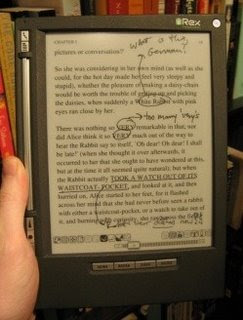 iRex
CHAPTER I
What is this,
German?
pictures or conversations?
So she was considering in her own mind (as well as she
could, for the hot day made her feel very sleepy and
stupid), whether the pleasure of making a daisy-chain
would be worth the trouble of getting up and picking
the daisies, when suddenly a White Rabbit with pink
eyes ran close by her.
too many very's
There was nothing so VERY remarkable in that; nor
did Alice think it so VERY much out of the way to
hear the Rabbit say to itself, 'Oh dear! Oh dear! I shall
be late!' (when she thought it over afterwards, it
occurred to her that she ought to have wondered at this,
but at the time it all seemed quite natural); but when
the Rabbit actually TOOK A WATCH OUT OF ITS
WAISTCOAT-POCKET, and looked at it, and then
hurried on, Alice started to her feet, for it flashed
across her mind that she had never before seen a rabbit
with either a waistcoat-pocket, or a watch to take out of
it, and burning with curiosity, she ran across the field